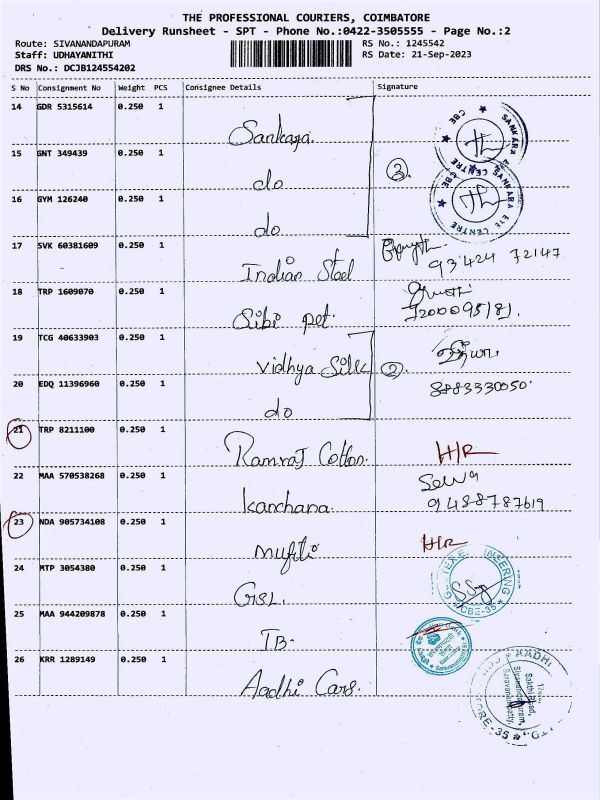 THE PROFESSIONAL COURIERS, COIMBATORE
Delivery Runsheet - SPT - Phone No.:0422-3505555 - Page No.:2
Route: SIVANANDAPURAM RS No.: 1245542
Staff: UDHAYANITHI RS Date: 21-Sep-2023
DRS No.: DCJB124554202
S No Consignment No Weight PCS Consignee Details Signature
14 GDR 5315614 0.250 1 Sankara.
SANKARA EYE CENTRE CBE
15 GNT 349439 0.250 1 do 3.
SANKARA EYE CENTRE CBE
16 GYM 126240 0.250 1 do
17 SVK 60381609 0.250 1 Indian Steel 93424 72147
18 TRP 1609070 0.250 1 Sibi pet. 7200095181.
19 TCG 40633903 0.250 1 Vidhya Silk 2.
20 EDQ 11396960 0.250 1 do 8883330050
21 TRP 8211100 0.250 1 Ramraj Cotton. H/R
22 MAA 570538268 0.250 1 Kanchana. 9488787619
23 NDA 905734108 0.250 1 Mufti H/R
24 MTP 3054380 0.250 1 GSL.
CBE-35
25 MAA 944209878 0.250 1 IB.
26 KRR 1289149 0.250 1 Aadhi Cars.
AADHI
Sakthi Road,
Sivanandapuram,
Saravanampatty,